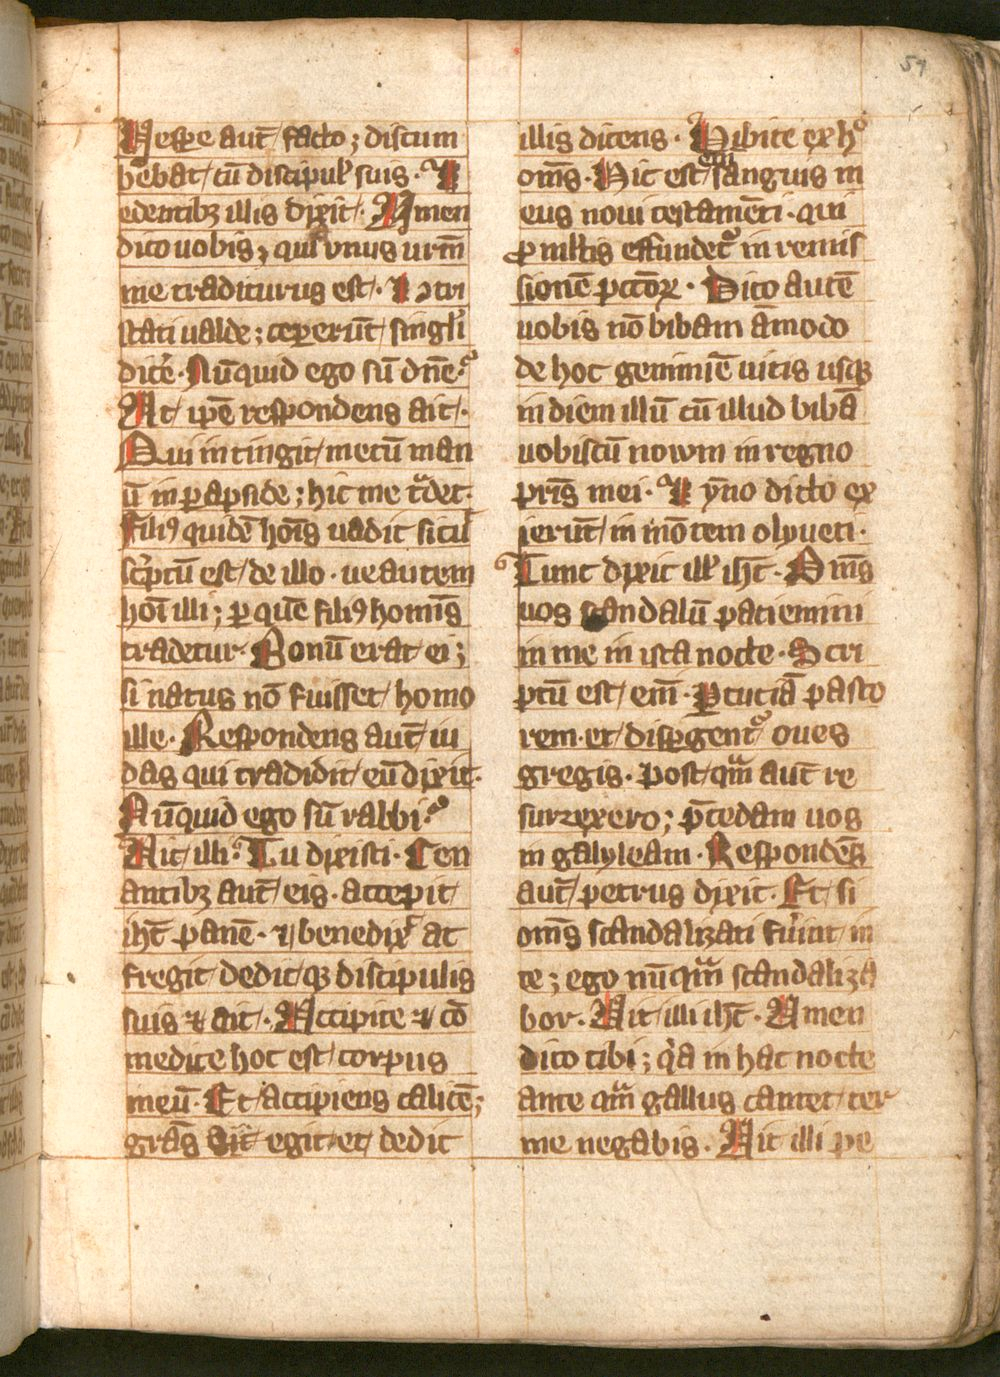 54
Vespe aut̄ facto; discum
bēbat cū discipul̕ suis · ⁊
edentibꝫ illis dixit · Amen
dico uobis; qui vnus urm̄
me traditurus est · ⁊ ↄtri
stati ualde; ceperūt singl̕i
dice̕ · Nūquid ego sū dn̄e?
At ipē respondens ait ·
Qui intingit mecū man
ū in parapside; hic me tͣdet ·
Filiꝰ quidē hoīs uadit sicut
sc̕ptū est de illo · ue autem
hoī illi; ꝑ quē filiꝰ homīs
tradetur · Bonū erat ei;
si natus nō fuisset homo
ille · Respondens aut̄ iu
das qui tradidit eū dixit ·
Nūquid ego sū rabbi?
Ait illi · Tu dixisti · Cen
antibꝫ aut̄ eis · accepit
ihc̄ panē · ⁊ benedix̕ at
fregit deditqꝫ discipulis
suis ⁊ ait · Accipite ⁊ cō
medite hoc est corpus
meū · Et accipiens calicē;
grās egit et dedit
illis dicens · Bibite ex hͦ
om̄s · Hic est sanguis m
eus noui testamēti · qui
ꝓ mltis effundet᷑ in remis
sionē pccōꝝ · Dico autē
uobis nō bibam āmodo
de hoc gemmīe uitis usqꝫ
in diem illū cū illud bibā
uobiscū nowm in regno
pr̄is mei · ⁊ ymno dicto ex
ierūt in mōtem olyueti ·
Tunc dixit ill̕ ihc̄ · Om̄s
uos scandalū patiemini
in me in ista nocte · Scri
ptū est em̄ · Pcuciā pasto
rem · et dispgent᷑ oues
gregis · Post qͣm aut̄ re
surrexero; p̄cedam uos
in galyleam · Respondēs
aut̄ petrus dixit · Et si
om̄s scandalizati fu̕int in
te; ego nūqͣm scandaliza
bor · Ait illi ihc̄ · Amen
dico tibi; qͥa in hac nocte
ante qͣm gallus cantet ter
me negabis · Ait illi pe